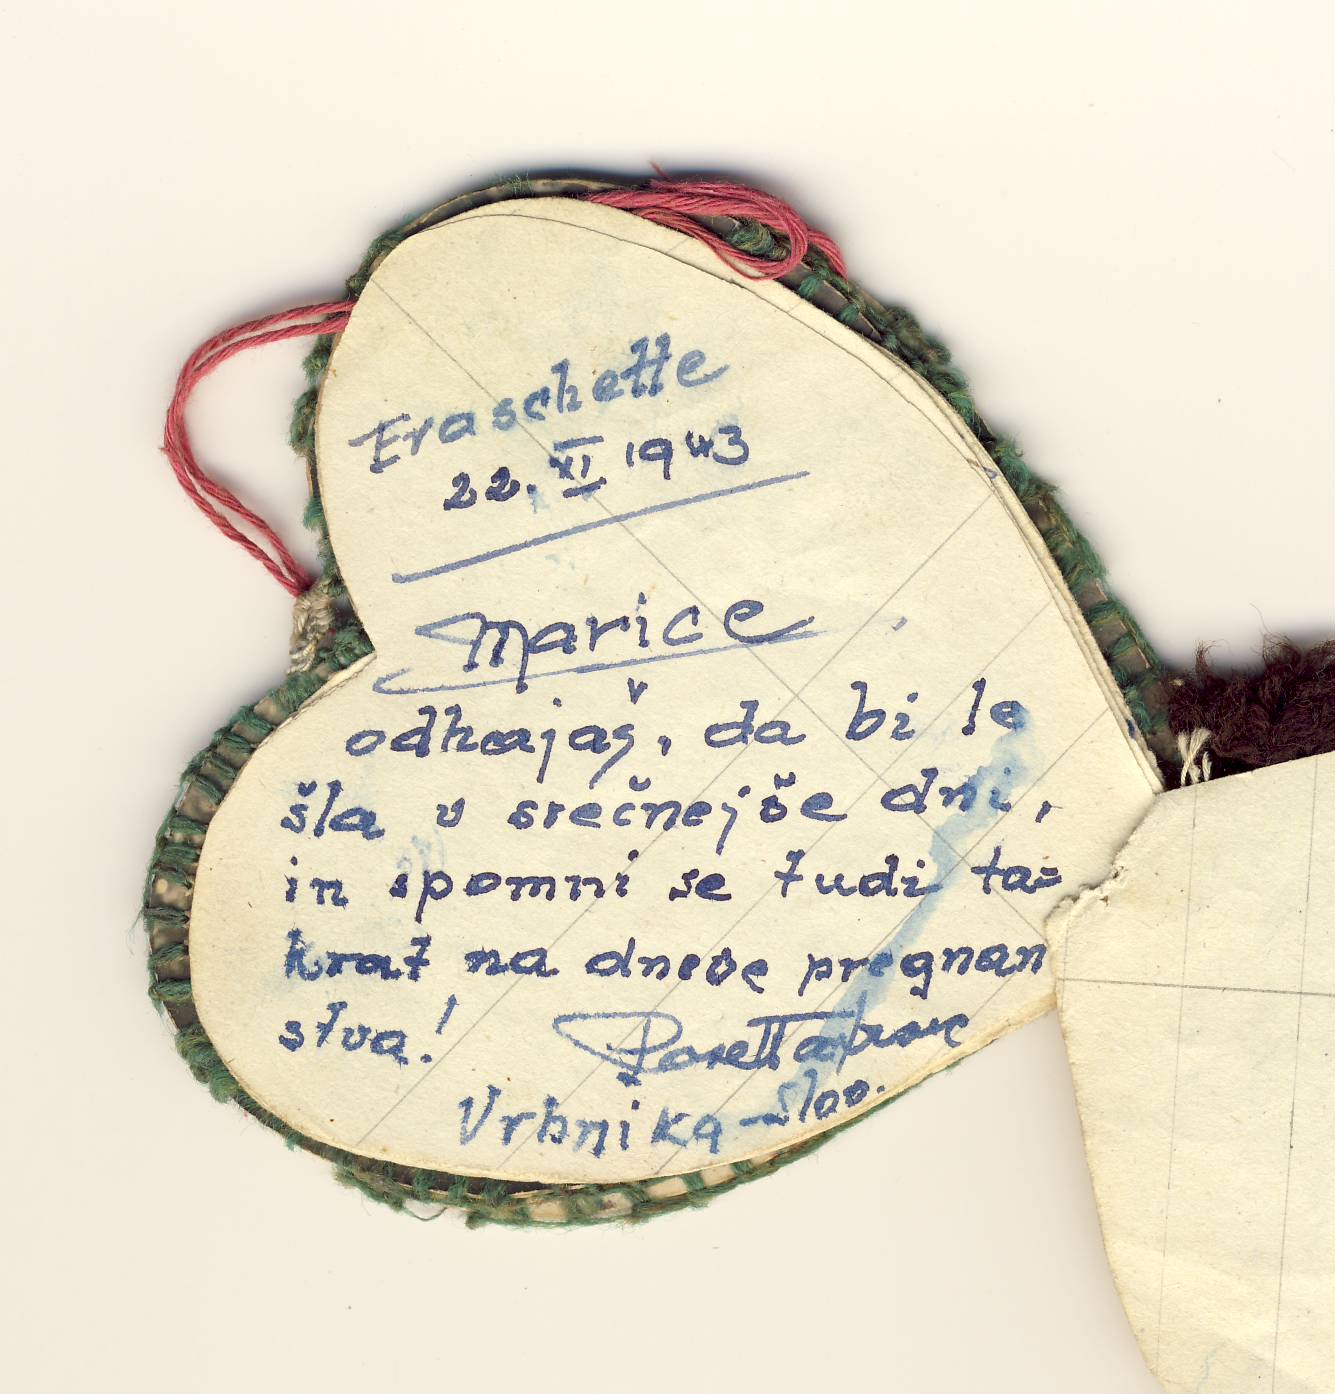 Fraschette
22. XI 1943
Marice
odhajaš, da bi le
šla v srečnejše dni,
in spomni se tudi ta=
krat na dneve pregnan
stva!
Vrhnika - Slov.